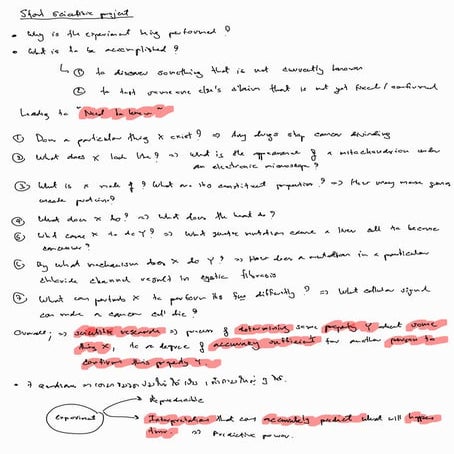 Start scientific project
• Why is the experiment being performed?
• What is to be accomplished?
↳ ① to discover something that is not currently known
② to test someone else's claim that is not yet fixed/confirmed
Leading to "Need to know"
① Does a particular thing X exist? ⇒ Any drugs stop cancer dividing
② What does X look like? ⇒ What is the appearance of a mitochondrion under
an electronic microscope?
③ What is X made of? What are its constituent properties? ⇒ How many genes
create proteins?
④ What does X do? ⇒ What does the do?
⑤ What cause X to do Y? ⇒ What genetic mutation cause a liver cell to become
cancerous?
⑥ By what mechanism does X do Y? ⇒ How does a mutation in a particular
chloride channel result in cystic fibrosis
⑦ What can X to perform its differently? ⇒ What cellular signal
can make a cancer cell die?
Overall; ⇒ scientific research ⇒ process of determining some property Y about some
thing X, to a degree of accuracy sufficient for another person to
confirm this property Y.
• 7
Experiment → Reproducible
→ Interpretation that can accurately predict what will happen
⇒ Predictive power.